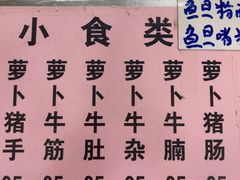 小食类
萝卜猪手
萝卜牛筋
萝卜牛肚
萝卜牛杂
萝卜牛腩
萝卜猪肠
鱼旦
鱼旦